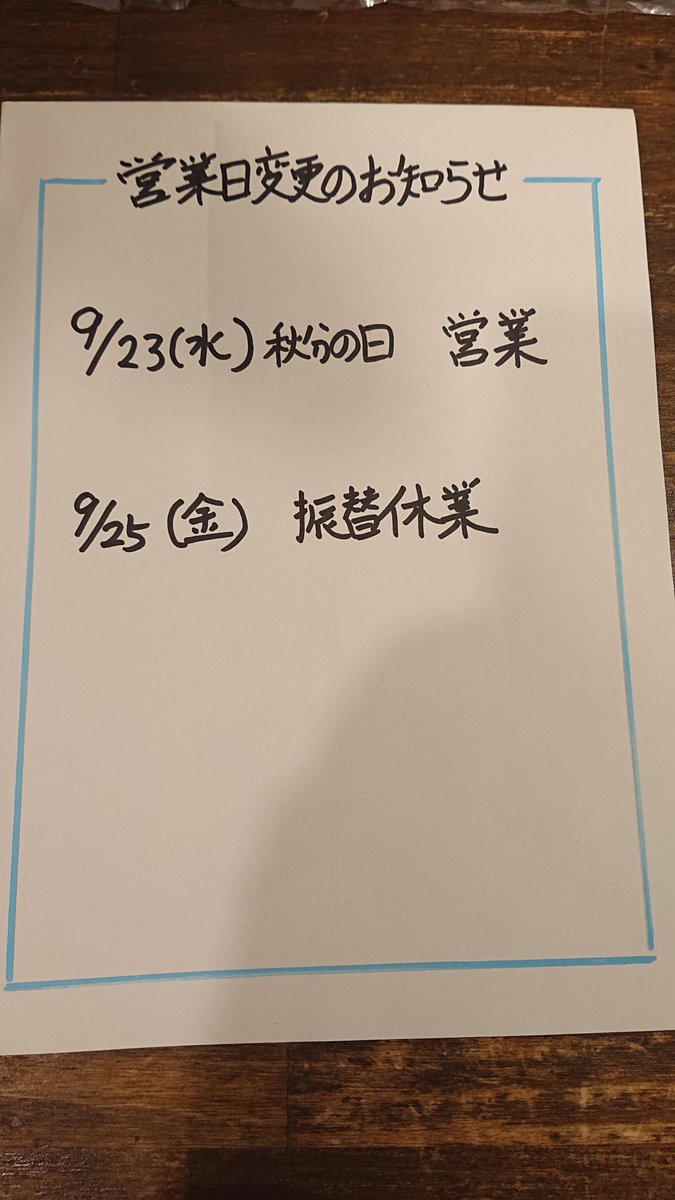 営業日変更のお知らせ
9/23(水)秋分の日 営業
9/25(金) 振替休業